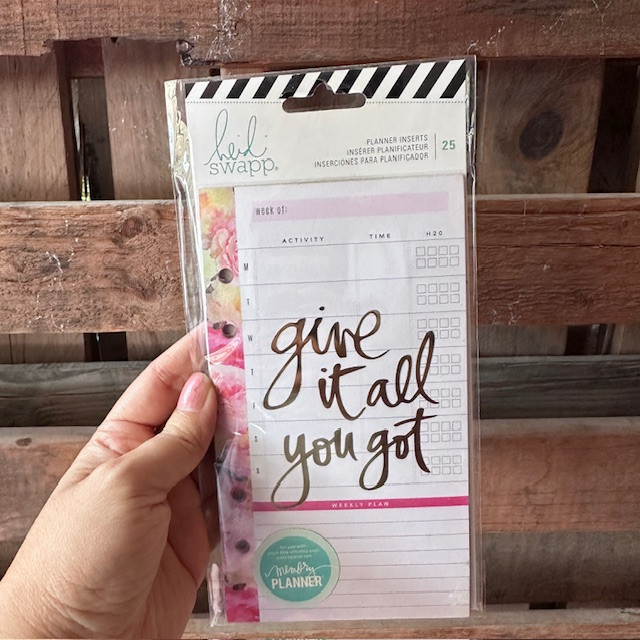 heidi
swapp®
PLANNER INSERTS
INSÉRER PLANIFICATEUR
INSERCIONES PARA PLANIFICADOR
25
week of:
ACTIVITY TIME H20
M
T
W
T
F
S
S
give
it all
you got
WEEKLY PLAN
memory
PLANNER